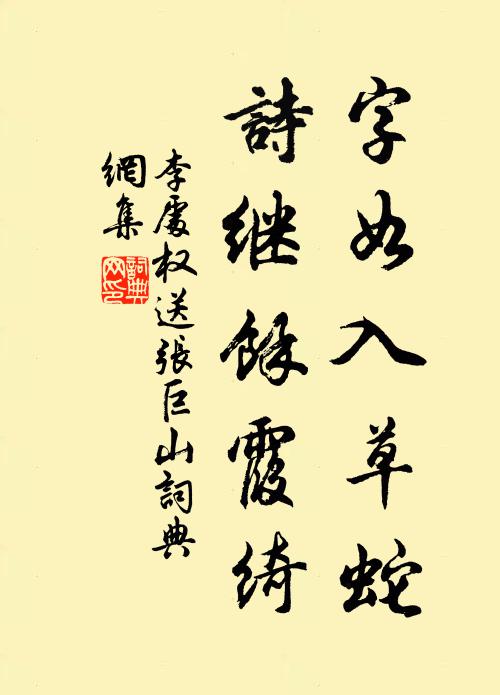 字如入草蛇
詩继餘霞綺
李處权送張巨山詞典
網集
詞典
网印